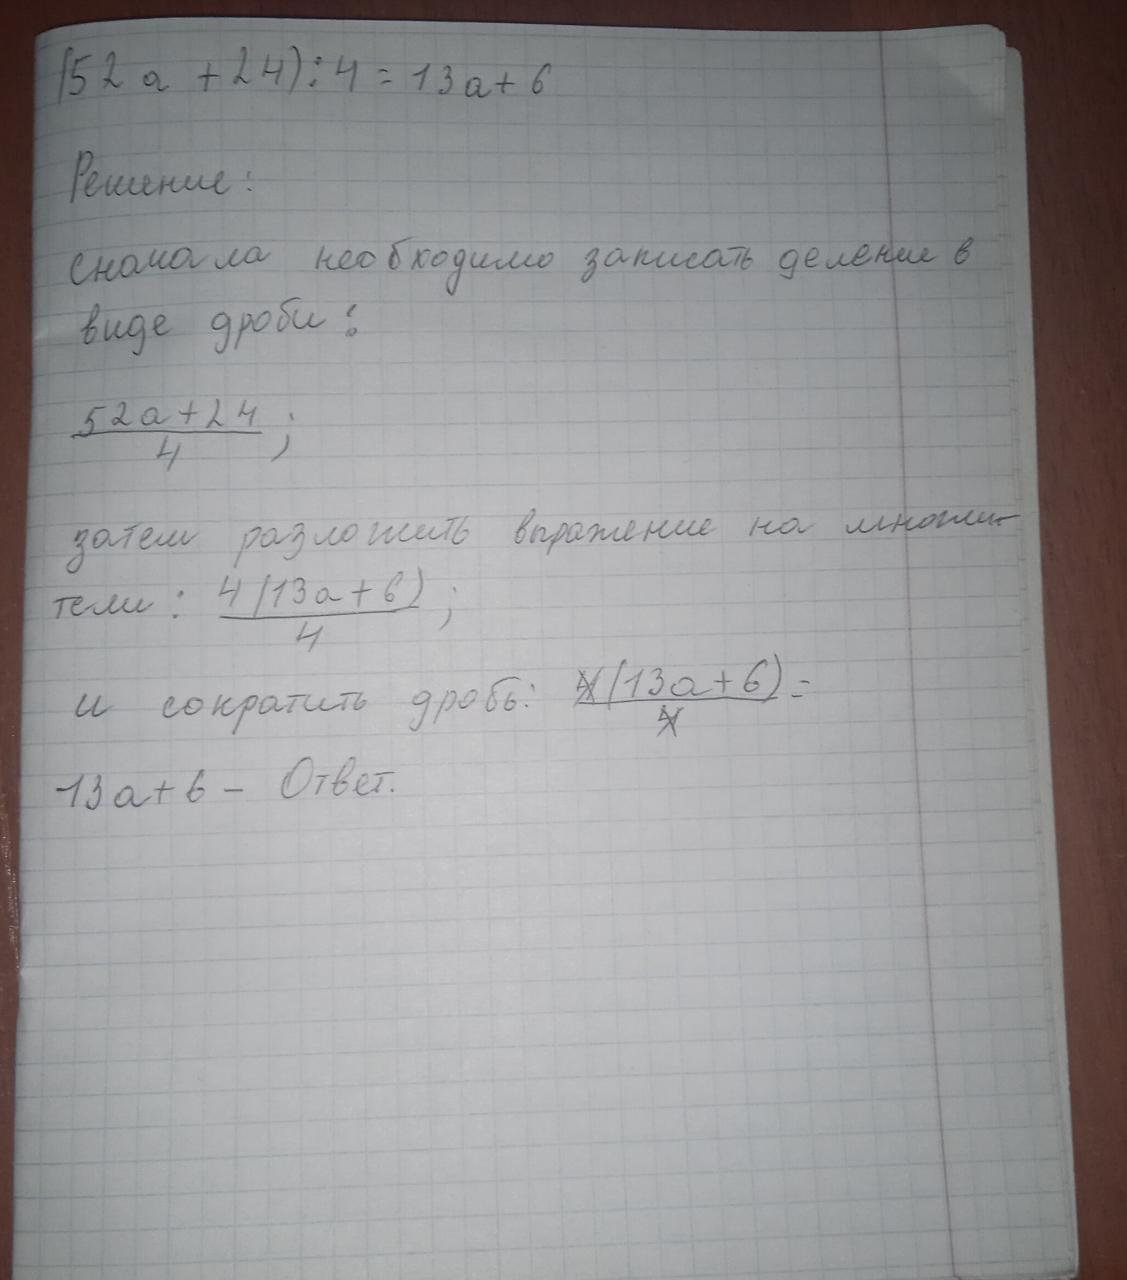 (52a + 24) : 4 = 13a + 6
Решение:
сначала необходимо записать деление в
виде дроби :
52a + 24
4 ;
затем разложить выражение на множи-
тели : 4(13a + 6) ;
4
и сократить дробь: 4(13a + 6) =
4
13a + 6 - Ответ.